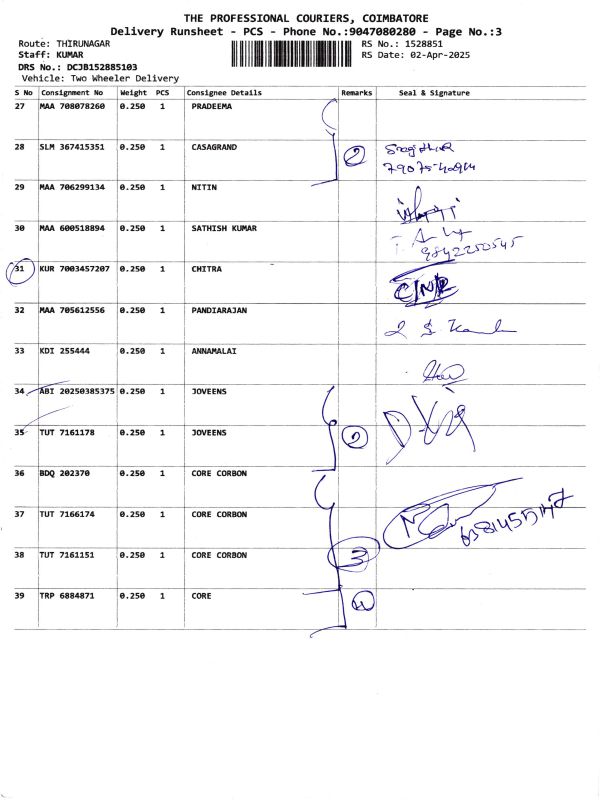 THE PROFESSIONAL COURIERS, COIMBATORE
Delivery Runsheet - PCS - Phone No.:9047080280 - Page No.:3
Route: THIRUNAGAR RS No.: 1528851
Staff: KUMAR RS Date: 02-Apr-2025
DRS No.: DCJB152885103
Vehicle: Two Wheeler Delivery
S No Consignment No Weight PCS Consignee Details Remarks Seal & Signature
27 MAA 708078260 0.250 1 PRADEEMA
28 SLM 367415351 0.250 1 CASAGRAND 2
29 MAA 706299134 0.250 1 NITIN
30 MAA 600518894 0.250 1 SATHISH KUMAR
9842250545
31 KUR 7003457207 0.250 1 CHITRA
32 MAA 705612556 0.250 1 PANDIARAJAN
33 KDI 255444 0.250 1 ANNAMALAI
34 ABI 20250385375 0.250 1 JOVEENS
35 TUT 7161178 0.250 1 JOVEENS 2
36 BDQ 202370 0.250 1 CORE CORBON
37 TUT 7166174 0.250 1 CORE CORBON
38 TUT 7161151 0.250 1 CORE CORBON 3
39 TRP 6884871 0.250 1 CORE 4